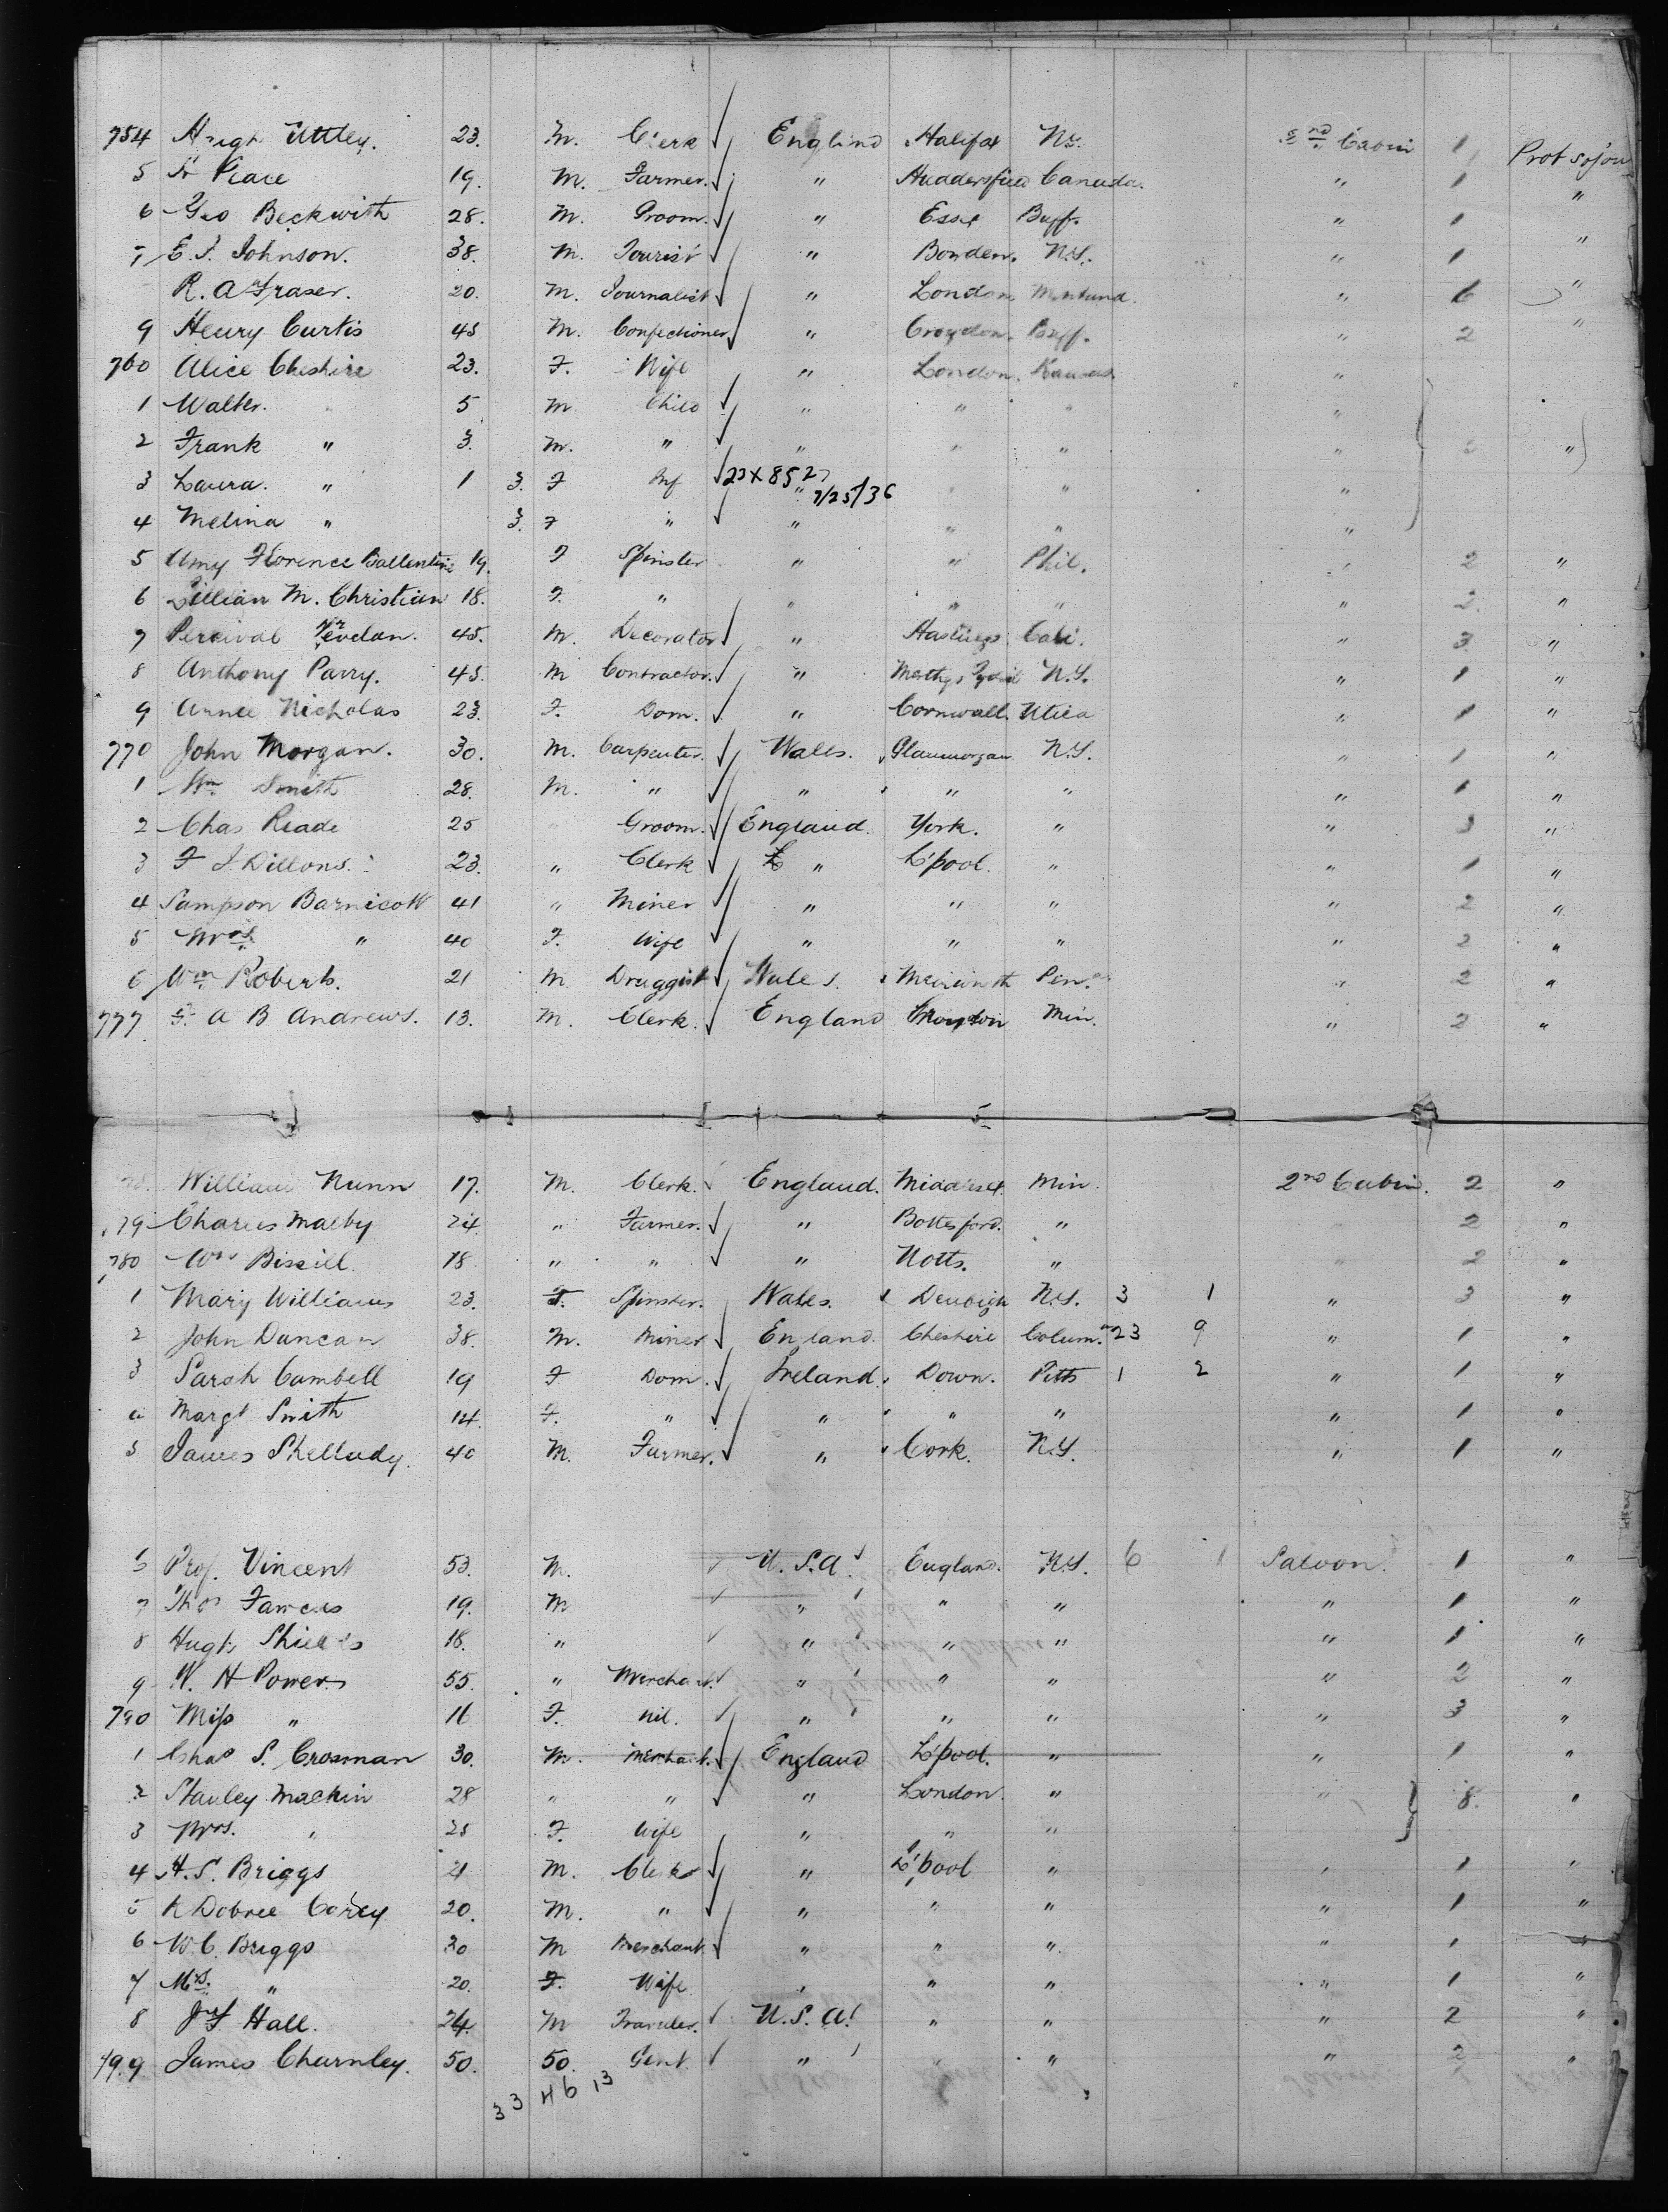 754 Hugh Uttley. 23. M. Clerk England Halifax N.Y. 2nd Cabin 1 Prot sojou
5 Peace 19. M. Farmer. " Huddersfield Canada. " 1 "
6 Geo Beckwith 28. M. Groom. " Essex Buff. " 1 "
7 E. J. Johnson. 38. M. Tourist " Bowden. N.Y. " 1 "
R. A Fraser. 20. M. Journalist " London " 6 "
9 Henry Curtis 45 M. Confectioner " Croydon. Buff. " 2
760 Alice Cheshire 23. F. Wife " London. Kansas "
1 Walter. " 5 M Child " " " "
2 Frank " 3. M. " " " " " "
3 Laura. " 1 3. F Inf 23x8527 " 7/25/36 " " "
4 Melina " 3. F " " " " "
5 Amy Florence Ballentine 19. F Spinster " " Phil. " 2 "
6 Lillian M. Christian 18. F. " " " " " 2. "
7 Percival 45. M. Decorator " Hastings Cali. " 3 "
8 Anthony Parry. 45. M Contractor. " Merthyr Tydvil N.Y. " 1 "
9 Annie Nicholas 23. F. Dom. " Cornwall. Utica " 1 "
770 John Morgan. 30. M. Carpenter. Wales. Glanmorgan N.Y. " 1 "
1 Wm Smith 28. M. " " " " " 1 "
2 Chas Reade 25 " Groom. England. York. " " 3 "
3 F J. Dillons. 23. " Clerk " L'pool. " " 1 "
4 Sampson Barnicott 41 " Miner " " " " 2 "
5 Mrs " 40 F. Wife " " " " 2 "
6 Wm Roberts. 21 M Druggist Wales. Meirionth Pen. " 2 "
777 A B Andrews. 13. M. Clerk. England Croydon Min. " 2 "
78. William Nunn 17. M. Clerk. England. Middlesex Min. 2nd Cabin. 2 "
779 Charles Malby 24. " Farmer. " Bottesford. " 2 "
780 Wm Bissill 18 " " " Notts. " 2 "
1 Mary Williams 23. F. Spinster. Wales. Denbigh N.Y. 3 1 " 3 "
2 John Duncan 38. M. Miner England. Cheshire Colum. 23 9 " 1 "
3 Sarah Cambell 19 F Dom. Ireland. Down. Pitts 1 2 " 1 "
4 Margt Smith 14. F. " " " " " 1 "
5 James Shellady. 40 M. Farmer. " Cork. N.Y. " 1 "
6 Prof. Vincent 53. M. U.S.A. England. N.Y. 6 1 Saloon. 1 "
7 Thos 19. M " " " " 1 "
8 Hugh Shields 18. " " " " " 1 "
9 W. H Powers 55. " Merchant. " " " " 2 "
790 Miss " 16 F. nil. " " " " 3 "
1 Chas S. Crosman 30. M. Merchant. England L'pool. " " 1 "
2 Stanley Mackin 28 " " " London. " " 8. "
3 Mrs. " 25 F. Wife " " "
4 H. S. Briggs 21 M. Clerk " L'pool " " 1 "
5 R Dobree Corey 20. M. " " " " " 1 "
6 W. C. Briggs 30 M Merchant. " " " " 1 "
7 Mrs. " 20. F. Wife " " " " 1 "
8 Hall. 24. M Traveler. U.S.A. " " " 2 "
799 James Charnley. 50. 50. Gent. " " " " 2 "
33 46 13